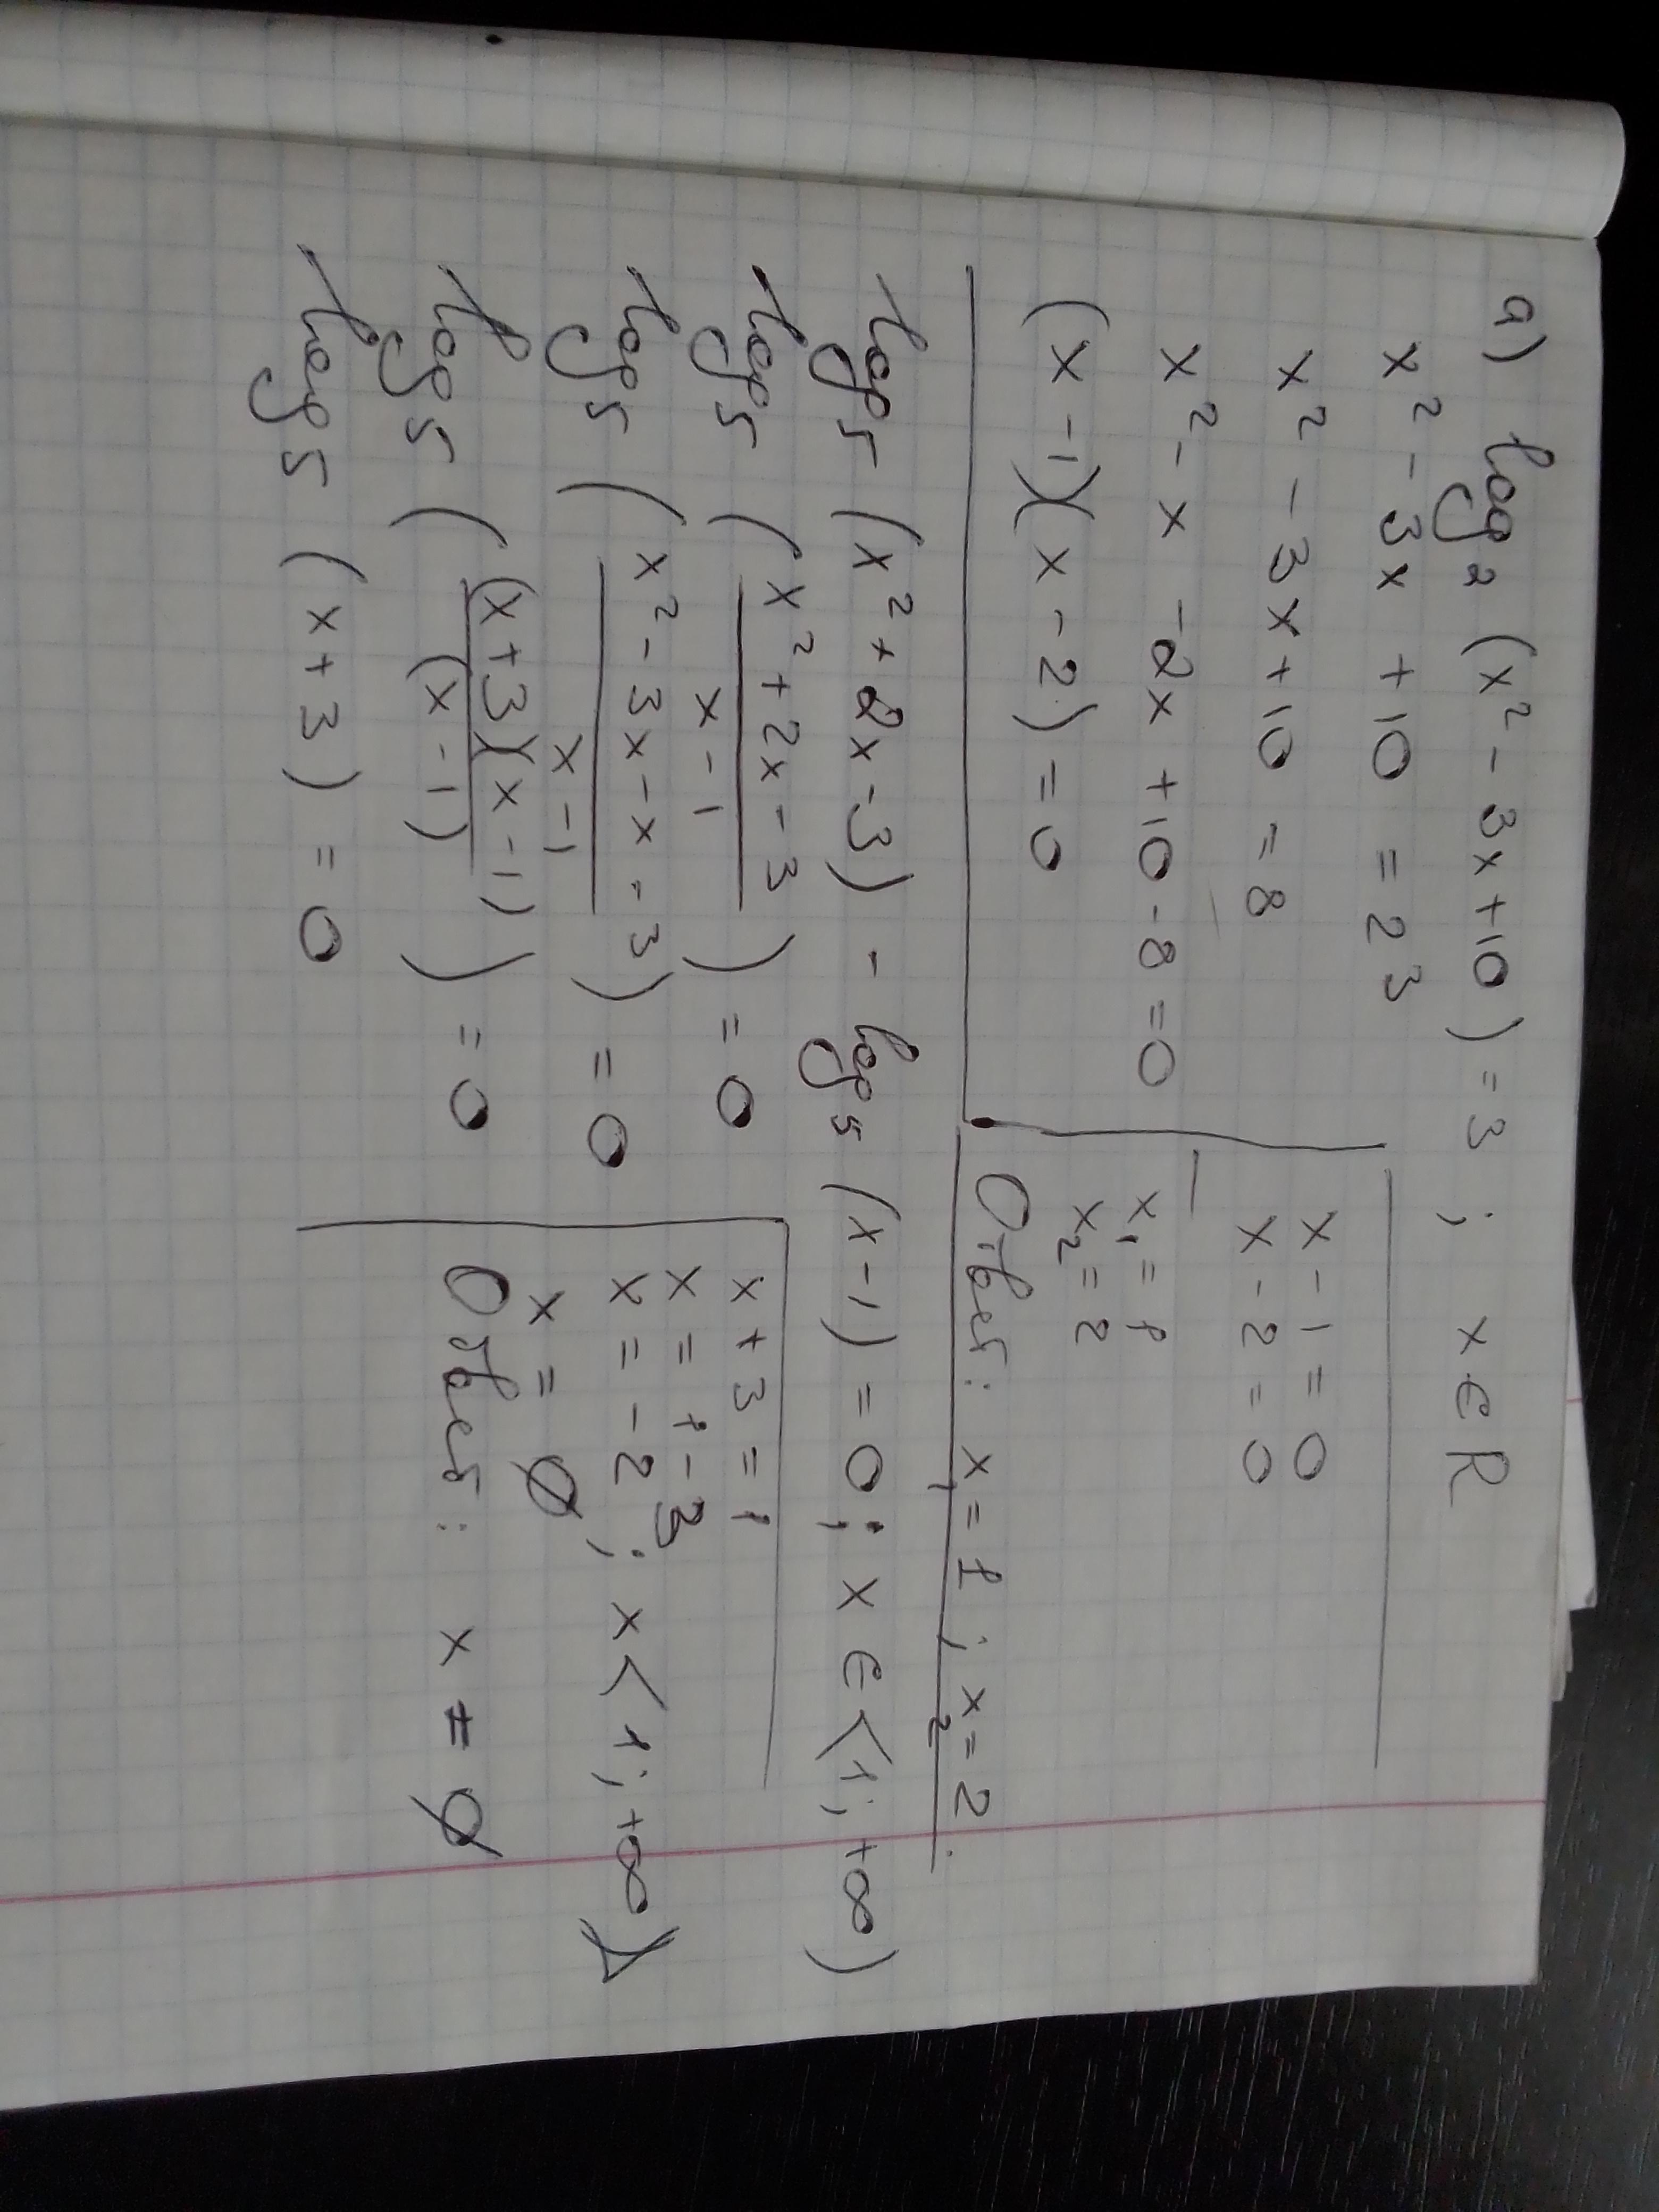 a) log₂ (x² - 3x + 10) = 3 ; x ∈ R
x² - 3x + 10 = 2³
x² - 3x + 10 = 8
x² - x - 2x + 10 - 8 = 0
(x - 1)(x - 2) = 0
x - 1 = 0
x - 2 = 0
x₁ = 1
x₂ = 2
Ответ: x₁ = 1 ; x₂ = 2.
log₅ (x² + 2x - 3) - log₅ (x - 1) = 0 ; x ∈ <1; +∞)
log₅ ((x² + 2x - 3)/(x - 1)) = 0
log₅ ((x² - 3x - x - 3)/(x - 1)) = 0
log₅ ((x + 3)(x - 1)/(x - 1)) = 0
log₅ (x + 3) = 0
x + 3 = 1
x = 1 - 3
x = -2 ; x < 1; +∞)
x = ∅
Ответ: x = ∅